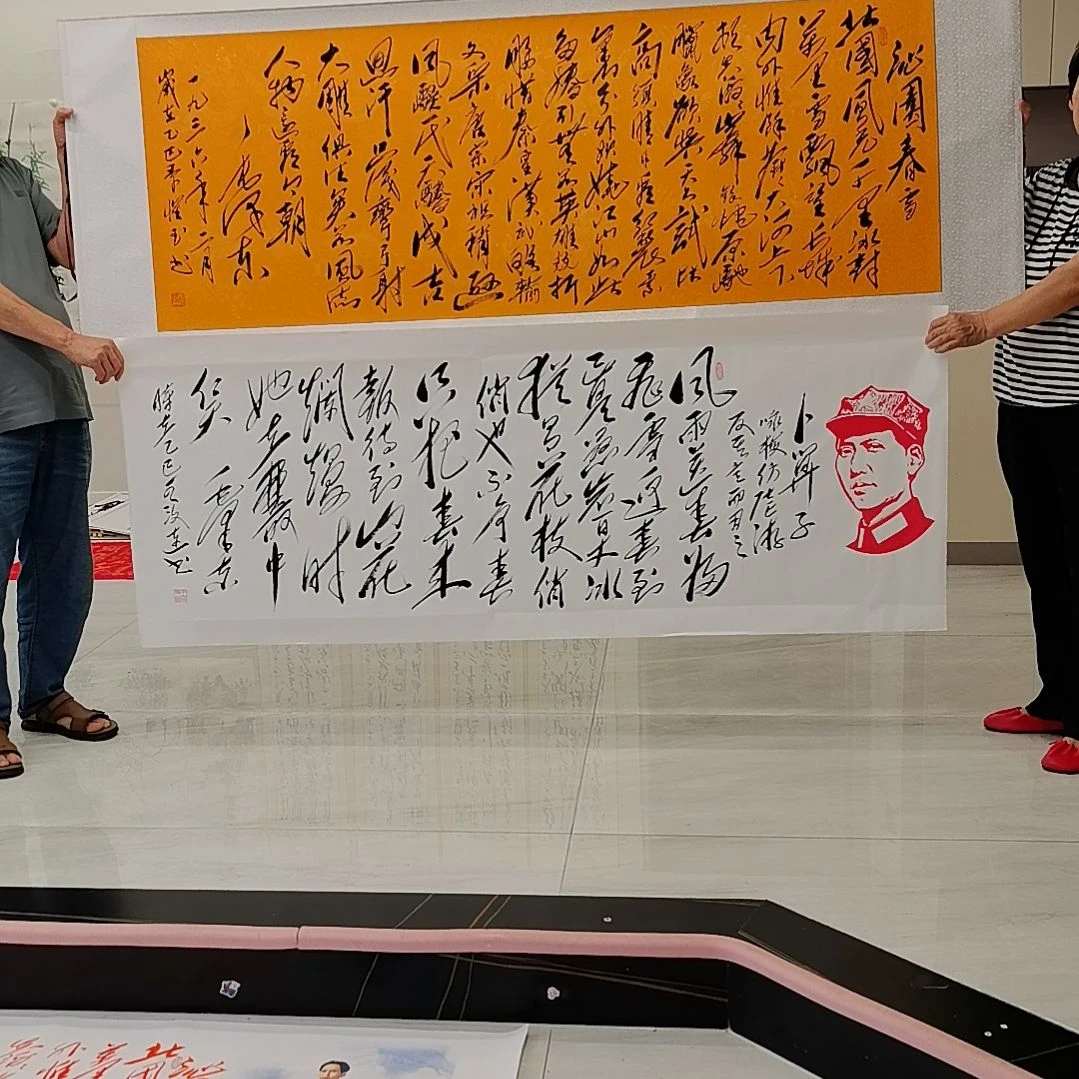 沁園春雪
北國風光千里冰封
萬里雪飄望长城
内外惟餘莽莽大河上下
頓失滔滔山舞銀蛇原馳
臘象欲與天公試比
高須晴日看紅裝素
裹分外妖嬈江山如此
多嬌引無數英雄競折
腰惜秦皇漢武略輸
文采唐宗宋祖稍遜
風騷一代天驕成吉
思汗只識彎弓射
大雕俱往矣数風流
人物還看今朝
毛澤东
一九三六年二月
歲在乙巳书
卜算子
咏梅仿陆游
反其意而用之
风雨送春归
飛雪迎春到
已是悬崖百丈冰
犹有花枝俏
俏也不争春
只把春来
報待到山花
爛熳时
她在叢中
笑 毛泽东
時在乙巳书